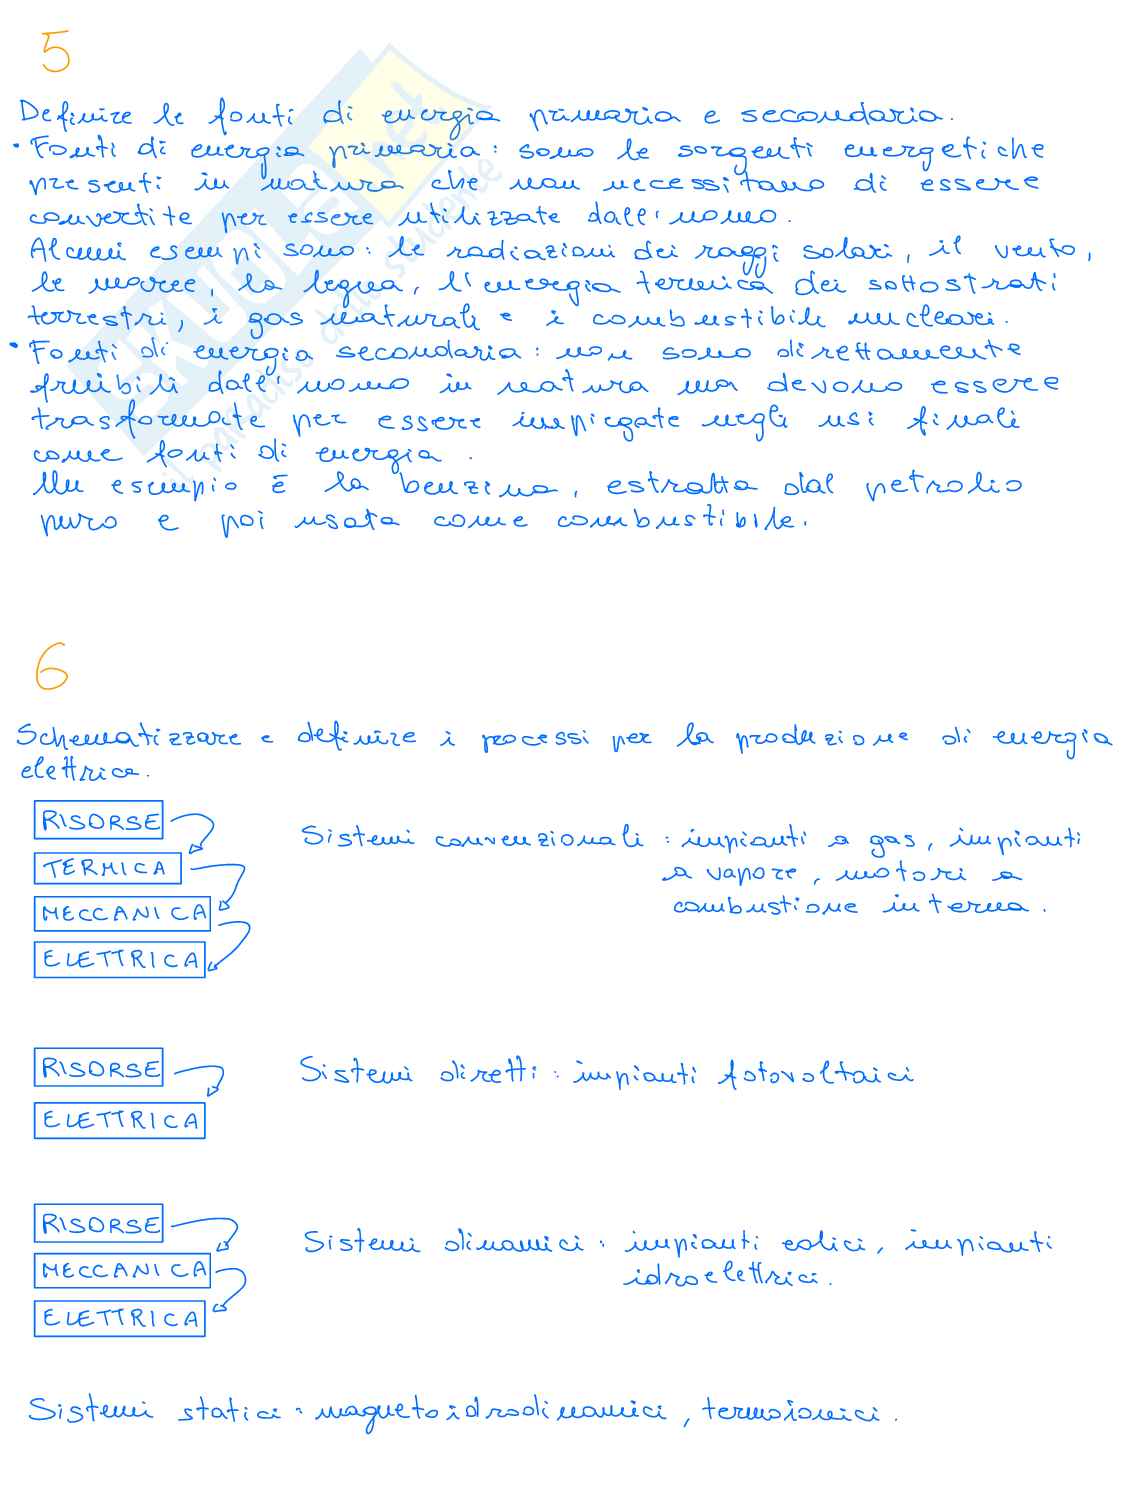 5
Definire le fonti di energia primaria e secondaria.
• Fonti di energia primaria: sono le sorgenti energetiche
presenti in natura che non necessitano di essere
convertite per essere utilizzate dall'uomo.
Alcuni esempi sono: le radiazioni dei raggi solari, il vento,
le maree, la legna, l'energia termica dei sottostrati
terrestri, i gas naturali e i combustibili nucleari.
• Fonti di energia secondaria: non sono direttamente
fruibili dall'uomo in natura ma devono essere
trasformate per essere impiegate negli usi finali
come fonti di energia.
Un esempio è la benzina, estratta dal petrolio
puro e poi usata come combustibile.
6
Schematizzare e definire i processi per la produzione di energia
elettrica.
RISORSE
TERMICA
MECCANICA
ELETTRICA
Sistemi convenzionali: impianti a gas, impianti
a vapore, motori a
combustione interna.
RISORSE
ELETTRICA
Sistemi diretti: impianti fotovoltaici
RISORSE
MECCANICA
ELETTRICA
Sistemi dinamici: impianti eolici, impianti
idroelettrici.
Sistemi statici: magnetoidrodinamici, termoionici.